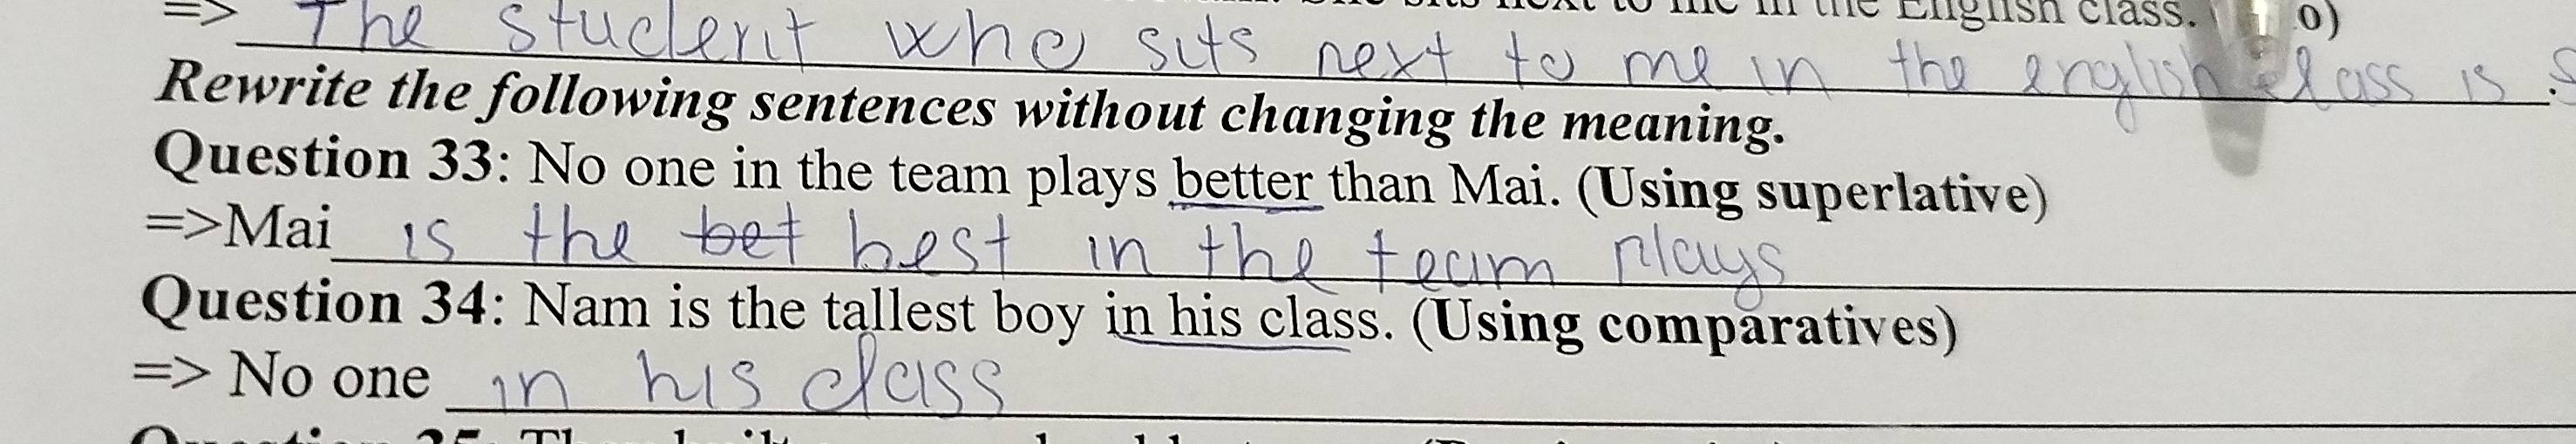 in the English class.
=> The student who sits next to me in the english class is
Rewrite the following sentences without changing the meaning.
Question 33: No one in the team plays better than Mai. (Using superlative)
=>Mai is the bet best in the team plays
Question 34: Nam is the tallest boy in his class. (Using comparatives)
=> No one in his class